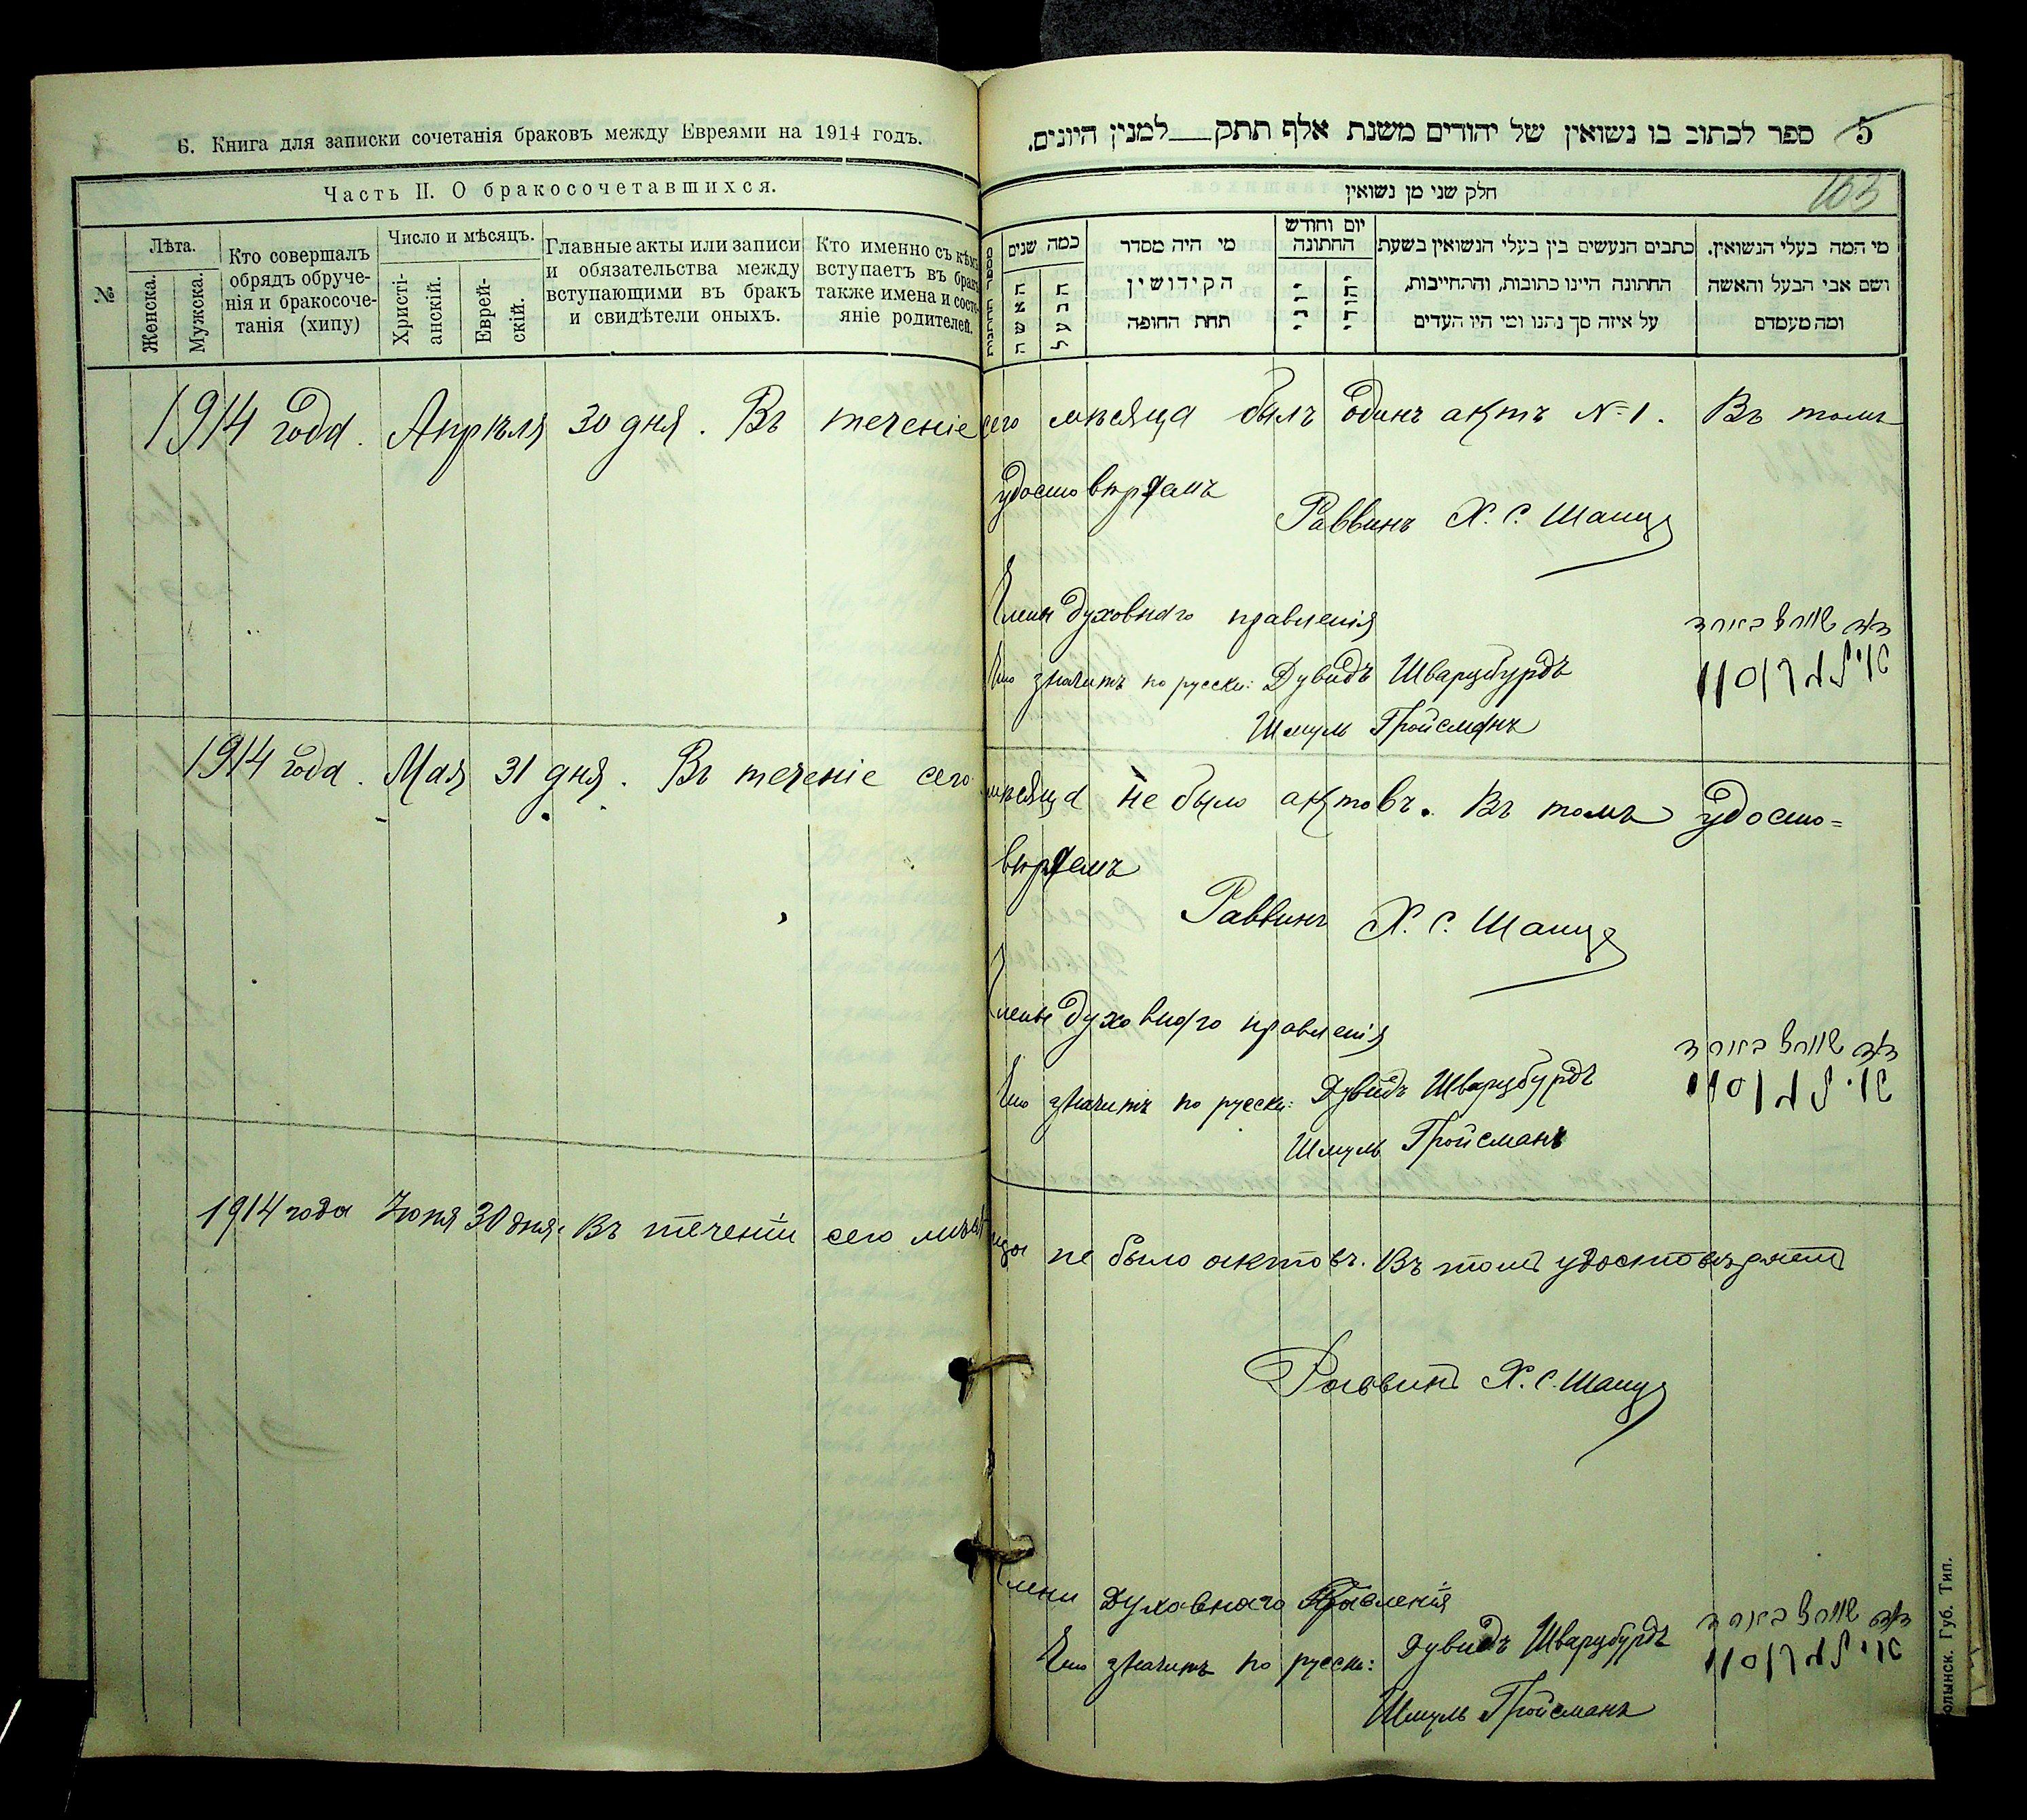 Б. Книга для записки сочетанія браковъ между Евреями на 1914 годъ.
Часть II. О бракосочетавшихся.
№
Лѣта.
Женска.
Мужска.
Кто совершалъ
обрядъ обруче-
нія и бракосоче-
танія (хипу)
Число и мѣсяцъ.
Христі-
анскій.
Еврей-
скій.
Главные акты или записи
и обязательства между
вступающими въ бракъ
и свидѣтели оныхъ.
Кто именно съ кѣмъ
вступаетъ въ бракъ
также имена и состо-
яніе родителей.
ספר לכתוב בו נשואין של יהודים משנת אלף תתק למנין היונים. 5
חלק שני מן נשואין
163
מספר החתונות
כמה שנים
האשה
הבעל
מי היה מסדר
הקידושין
תחת החופה
יום וחודש
החתונה
יוני
יהודי
כתבים הנעשים בין בעלי הנשואין בשעת
החתונה היינו כתובות, והתחייבות,
על איזה סך נתנו ומי היו העדים
מי המה בעלי הנשואין.
ושם אבי הבעל והאשה
ומה מעמדם
1914 года. Апрѣля 30 дня. Въ теченіе сего мѣсяца былъ одинъ актъ №1. Въ томъ
удостовѣряемъ
Раввинъ Х. С. Шапиро
Члены духовнаго правленія
דוד שווארצבורד
Что значитъ по русски: Дувидъ Шварцбурдъ
Шмуль Гройсманъ
1914 года. Мая 31 дня. Въ теченіе сего мѣсяца не было актовъ. Въ томъ удосто=
вѣряемъ
Раввинъ Х. С. Шапиро
Члены духовнаго правленія
דוד שווארצבורד
Что значитъ по русски: Дувидъ Шварцбурдъ
Шмуль Гройсманъ
1914 года Іюня 30 дня. Въ теченіи сего мѣсяца не было актовъ. Въ томъ удостовѣряемъ
Раввинъ Х. С. Шапиро
Члени Духовнаго Правленія
דוד שווארצבורד
Что значитъ по русски: Дувидъ Шварцбурдъ
Шмуль Гройсманъ
олынск. Губ. Тип.